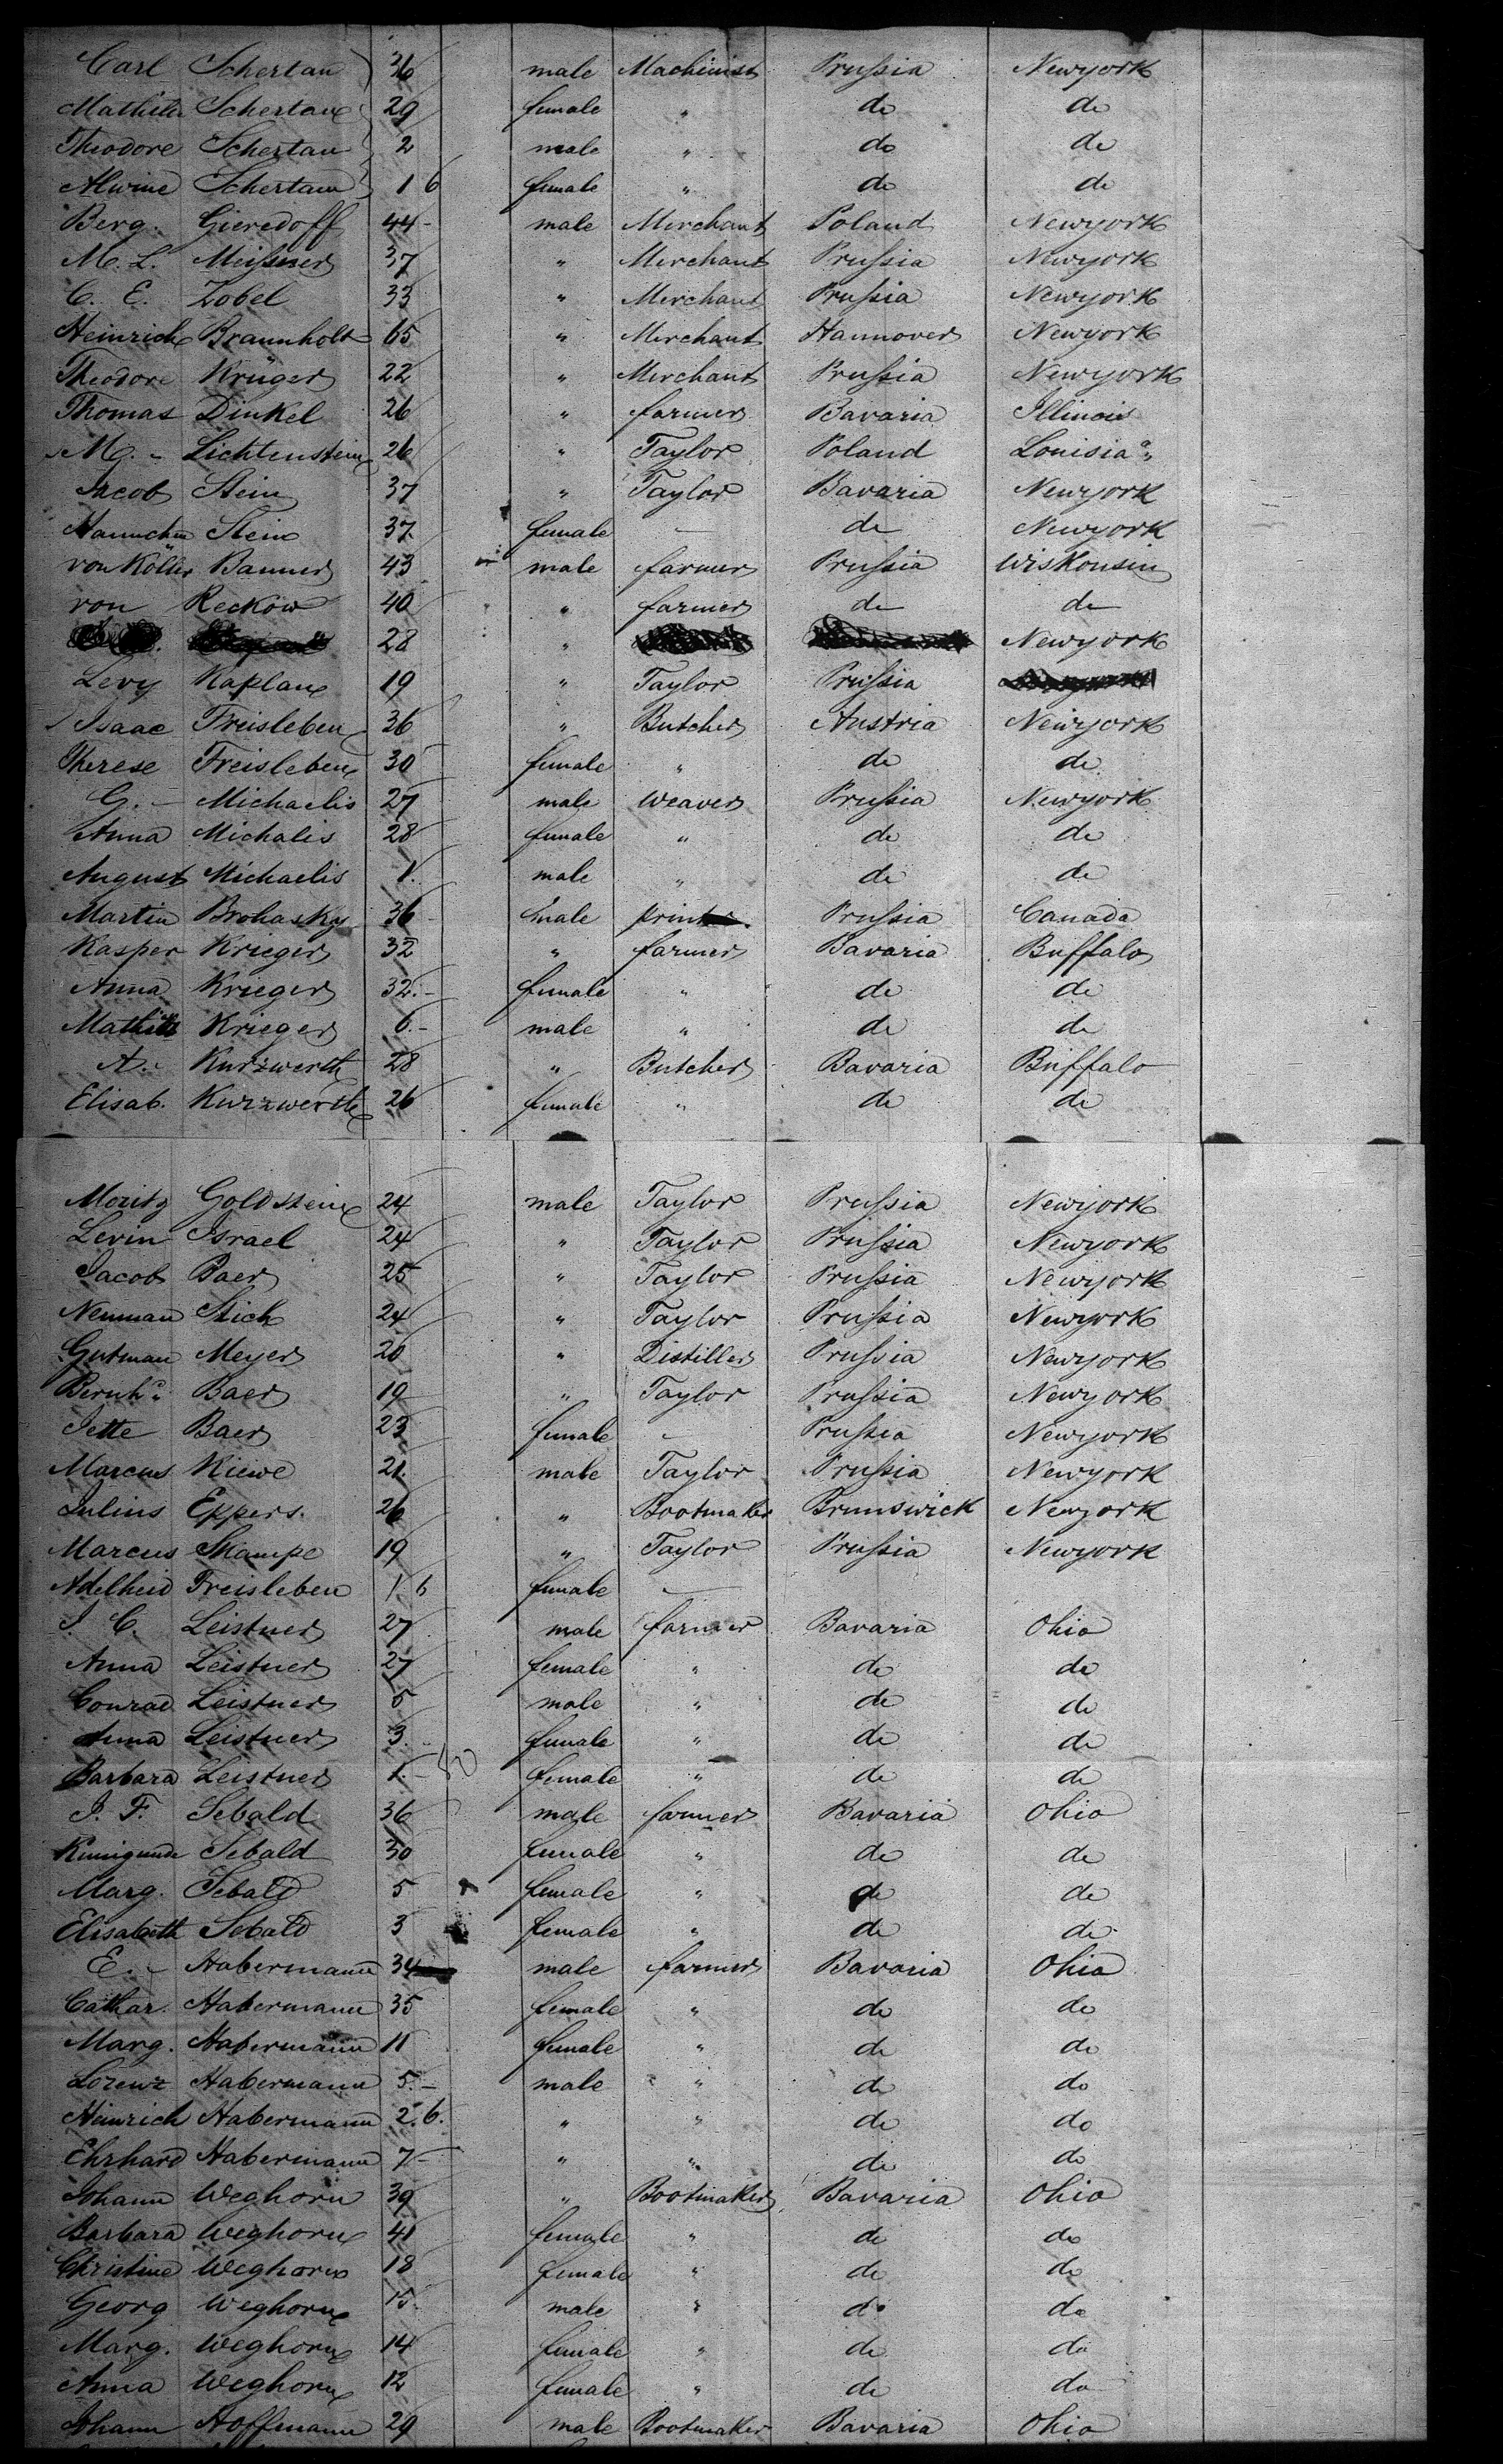 Carl Schertau 36 male Machinist Prussia Newyork
Mathilde Schertau 29 female " do do
Theodore Schertau 2 male " do do
Alwine Schertau 1 6 female " do do
Berg. Gieredoff 44 - male Merchant Poland Newyork
M. L. Meissner 37 " Merchant Prussia Newyork
C. E. Zobel 33 " Merchant Prussia Newyork
Heinrich Braunholt 65 " Merchant Hannover Newyork
Theodore Krüger 22 " Merchant Prussia Newyork
Thomas Dinkel 26 " farmer Bavaria Illinois
M. - Lichtenstein 26 " Taylor Poland Louisiaª"
Jacob Stein 37 " Taylor Bavaria Newyork
Hannchen Stein 37. female — do Newyork
von Köller Banner 43 male farmer Prussia Wiskonsin
von Reckow 40 " farmer do do
28 " Newyork
Levy Kaplan 19 " Taylor Prussia
Isaac Freisleben 36 " Butcher Austria Newyork
Therese Freisleben 30 female " do do
G. - Michaelis 27 male Weaver Prussia Newyork
Anna Michalis 28 female " do do
August Michaelis 1. male " do do
Martin Brohasky 36 - male Prussia Canada
Kasper Krieger 32 " farmer Bavaria Buffalo
Anna Krieger 32. - female " do do
Krieger 6. - male " do do
A. - Kurzwerth 28 " Butcher Bavaria Buffalo
Elisab. Kurzwerth 26 female " do do
Moritz Goldstein 24 male Taylor Prussia Newyork
Levin Israel 24 " Taylor Prussia Newyork
Jacob Baer 25 " Taylor Prussia Newyork
Neuman Stich 24 " Taylor Prussia Newyork
Gutman Meyer 20 " Distiller Prussia Newyork
Bernhd. Baer 19 " Taylor Prussia Newyork
Jette Baer 23 female — Prussia Newyork
Marcus Kiewe 21. male Taylor Prussia Newyork
Julius Eppers. 26 " Bootmaker Brunswick Newyork
Marcus Skampe 19 " Taylor Prussia Newyork
Adelheid Freisleben 1 6 female —
J. C. Leistner 27 male farmer Bavaria Ohio
Anna Leistner 27 female " do do
Conrad Leistner 5 male " do do
Anna Leistner 3. female " do do
Barbara Leistner 1. - female " do do
J. F. Sebald 36 male farmer Bavaria Ohio
Kunigunde Sebald 30 female " do do
Marg. Sebald 5 female " do do
Elisabeth Sebald 3 female " do do
E. - Habermann 34 male farmer Bavaria Ohio
Cathar. Habermann 35 female " do do
Marg. Habermann 11 female " do do
Lorenz Habermann 5. - male " do do
Heinrich Habermann 2. 6. " " do do
Ehrhard Habermann 7 - " " do do
Johann Weghorn 39 " Bootmaker Bavaria Ohio
Barbara Weghorn 41 female " do do
Christine Weghorn 18 female " do do
Georg Weghorn 15. male " do do
Marg. Weghorn 14 female " do do
Anna Weghorn 12 female " do do
Johann Hoffmann 29 male Bootmaker Bavaria Ohio